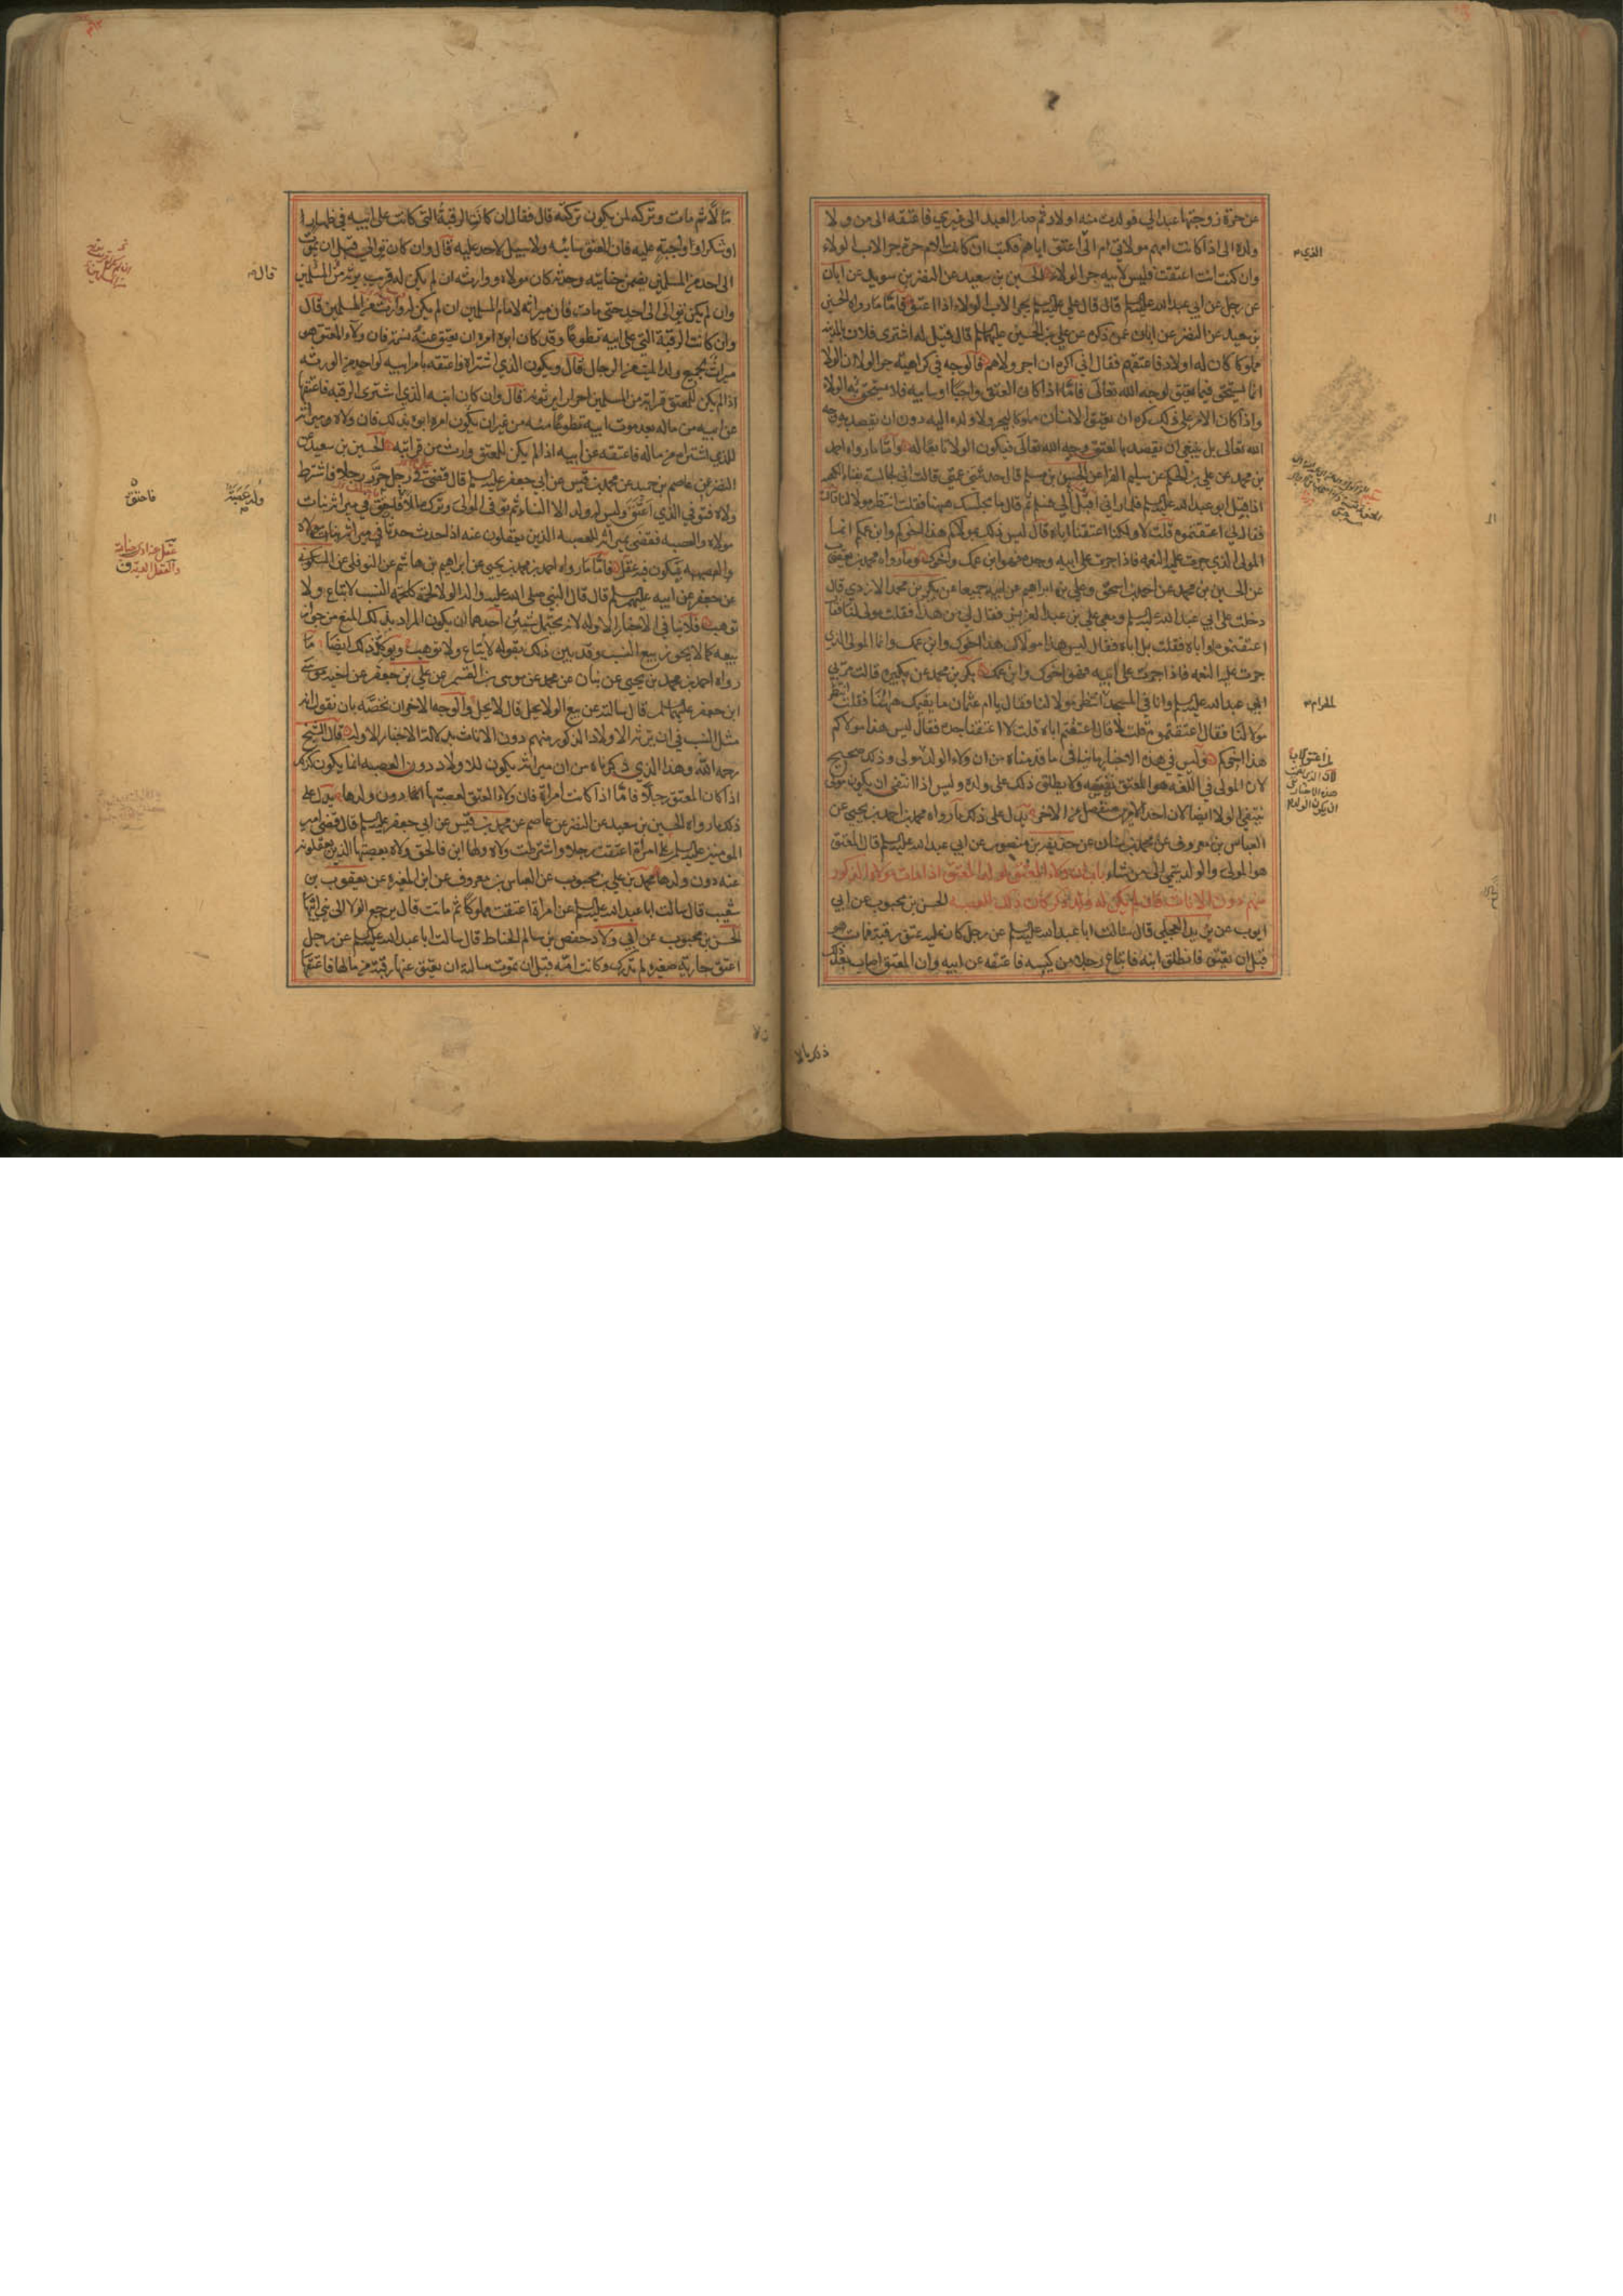 عن حرة زوجتها عبدا لي فولدت منه اولادا ثم صار العبد الى غيري فاعتقه الى من ولاء
ولده الى اذا كانت امهم مولاتي ام الى الذي اعتق اباهم فكتب ان كانت الام حرة جر الاب الولاء
وان كنت انت اعتقت فليس لابيه جر الولاء الحسين بن سعيد عن النضر بن سويد عن ابان
عن رجل عن ابي عبد الله عليه السلم قال قال علي عليه السلم يجر الاب الولاء اذا اعتق فاما ما رواه الحسين
بن سعيد عن النضر عن ابان عمن ذكره عن علي بن الحسين عليهما السلم قال قيل له اشترى فلان بالمدينة
مملوكا كان له اولاد فاعتقهم فقال اني اكره ان اجر ولاءهم فالوجه في كراهيته جر الولاء ان الولاء
انما يستحق فيما يعتق لوجه الله تعالى فاما اذا كان العتق واجبا او سايبه فلا يستحق به الولاء
واذا كان الامر على ذلك كره ان يعتق الانسان مملوكا ليجر ولاء ولده اليه دون ان يقصد به وجه
الله تعالى بل ينبغي ان يقصد بالعتق وجه الله تعالى فيكون الولاء تابعا له واما ما رواه احمد
بن محمد عن علي بن الحكم عن سليم الفرا عن الحسين بن مسلم قال حدثتني عمتي قالت اني لجالسة بفناء الكعبة
اذ اقبل ابو عبد الله عليه السلم فلما راني اقبل الي فسلم ثم قال ما يجلسك ههنا فقلت انتظر مولا لنا قالت
فقال لي اعتقتموه قلت لا ولكنا اعتقنا اباه قال ليس ذلك بمولاكم هذا اخوكم وابن عمكم انما
المولى الذي جرت عليه النعمة فاذا جرت على ابيه وجده فهو ابن عمك واخوك وما رواه محمد بن يعقوب
عن الحسين بن محمد عن احمد بن اسحق وعلي بن ابراهيم عن ابيه جميعا عن بكر بن محمد الازدي قال
دخلت على ابي عبد الله عليه السلم ومعي علي بن عبد العزيز فقال لي من هذا فقلت مولى لنا فقال
اعتقتموه او اباه فقلت بل اباه فقال ليس هذا مولاك هذا اخوك وابن عمك وانما المولى الذي
جرت عليه النعمة فاذا جرت على ابيه فهو اخوك وابن عمك بكر بن محمد عن بكيرة قالت مر بي
ابي عبد الله عليه السلم وانا في المسجد انتظر مولا لنا فقال يا ام عثمان ما يقيمك ههنا فقلت انتظر
مولا لنا فقال اعتقتموه قلت لا قال اعتقتم اباه قلت لا اعتقنا جده فقال ليس هذا مولاكم
هذا اخوكم وليس في هذه الاخبار ما ينافي ما قدمناه من ان ولاء الولد مولى وذلك صحيح
لان المولى في اللغة هو المعتق نفسه ولا يطلق ذلك على ولده وليس اذا انتفى ان يكون مولى
ينتفي الولاء ايضا لان احد الامرين منفصل عن الاخر يدل على ذلك ما رواه محمد بن احمد بن يحيى عن
العباس بن معروف عن محمد بن سنان عن حذيفة بن منصور عن ابي عبد الله عليه السلم قال المعتق
هو المولى والولد ينتمي الى من شاء باب ان ولاء المعتق لولد المعتق اذا مات من الولد الذكور
منهم دون الاناث فان لم يكن له ولد ذكر كان ذلك للعصبة الحسن بن محبوب عن ابي
ايوب عن بريد العجلي قال سالت ابا عبد الله عليه السلم عن رجل كان عليه عتق رقبة فمات هو
قبل ان يعتق فانطلق ابنه فابتاع رجلا من كيسه فاعتقه عن ابيه وان المعتق اصاب بعد ذلك
الذي
الحرام
ذلك مالا
مالا ثم مات وتركه لمن يكون تركته قال فقال ان كانت الرقبة التي كانت على ابيه في ظهار
او شكر او واجبة عليه فان المعتق سائبه ولا سبيل لاحد عليه قال وان كان توالى قبل ان يموت
الى احد من المسلمين يضمن جنايته وحدثه كان مولاه ووارثه ان لم يكن له قريب يرثه من المسلمين
وان لم يكن توالى الى احد حتى مات فان ميراثه لامام المسلمين ان لم يكن له وارث من المسلمين قال
وان كانت الرقبة التي على ابيه تطوعا وقد كان ابوه امره ان يعتق عنه نسمة فان ولاء المعتق هو
ميراث لجميع ولد الميت من الرجال قال ويكون الذي اشتراه واعتقه بامر ابيه كواحد من الورثه
اذا لم يكن للمعتق قرابة من المسلمين احرار يرثونه قال وان كان ابنه الذي اشترى الرقبة فاعتقها
عن ابيه من ماله بعد موت ابيه تطوعا منه من غير ان يكون امره ابوه بذلك فان ولاءه وميراثه
للذي اشتراه من ماله فاعتقه عن ابيه اذا لم يكن للمعتق وارث من قرابته الحسين بن سعيد عن
النضر عن عاصم بن حميد عن محمد بن قيس عن ابي جعفر عليه السلم قال قضى في رجل حرر رجلا فاشترط
ولاءه فتوفي الذي اعتق وليس له ولد الا النساء ثم توفي المولى وترك مالا فاحتق في ميراثه بنات
مولاه والعصبه فقضى بميراثه للعصبه الذين يعقلون عنه اذا احدث حدثا في ميراثه بنات مولاه
والعصبه يكون فيه عقل فاما ما رواه احمد بن محمد بن يحيى عن ابراهيم بن هاشم عن النوفلي عن السكوني
عن جعفر عن ابيه عليهم السلم قال قال النبي صلى الله عليه واله الولاء لحمة كلحمة النسب لا تباع ولا
توهب فلا ينافي الاخبار الاوله لانه يحتمل شيئين احدهما ان يكون المراد بذلك المنع من جواز
بيعه كما لا يجوز بيع النسب وقد بين ذلك بقوله لا يباع ولا توهب ويؤكد ذلك ايضا ما
رواه احمد بن محمد بن يحيى عن بنان عن محمد عن موسى بن القسم عن علي بن جعفر عن اخيه موسى
ابن جعفر عليهما السلم قال سالته عن بيع الولاء يحل قال لا يحل والوجه الاخر ان نخصه بان نقول انه
مثل النسب في ان يرثه الاولاد الذكور منهم دون الاناث بدلالة الاخبار الاوله قال الشيخ
رحمه الله وهذا الذي ذكرناه من ان ميراثه يكون للاولاد دون العصبه انما يكون كذلك
اذا كان المعتق رجلا فاما اذا كانت امراة فان ولاء المعتق لعصبتها دون ولدها يدل على
ذلك ما رواه الحسين بن سعيد عن النضر عن عاصم عن محمد بن قيس عن ابي جعفر عليه السلم قال قضى امير
المومنين عليه السلم على امراة اعتقت رجلا واشترطت ولاءه ولها ابن فالحق ولاءه بعصبتها الذين يعقلون
عنه دون ولدها محمد بن علي بن محبوب عن العباس بن معروف عن ابن المغيرة عن يعقوب بن
شعيب قال سالت ابا عبد الله عليه السلم عن امراة اعتقت مملوكا ثم ماتت قال يرجع الولاء الى بني ابيها
الحسن بن محبوب عن ابي ولاد حفص بن سالم الحناط قال سالت ابا عبد الله عليه السلم عن رجل
اعتق جارية صغيرة لم تدرك وكانت امه قبل ان تموت سالته ان يعتق عنها رقبة من مالها فاعتقها
قال
فاحتق